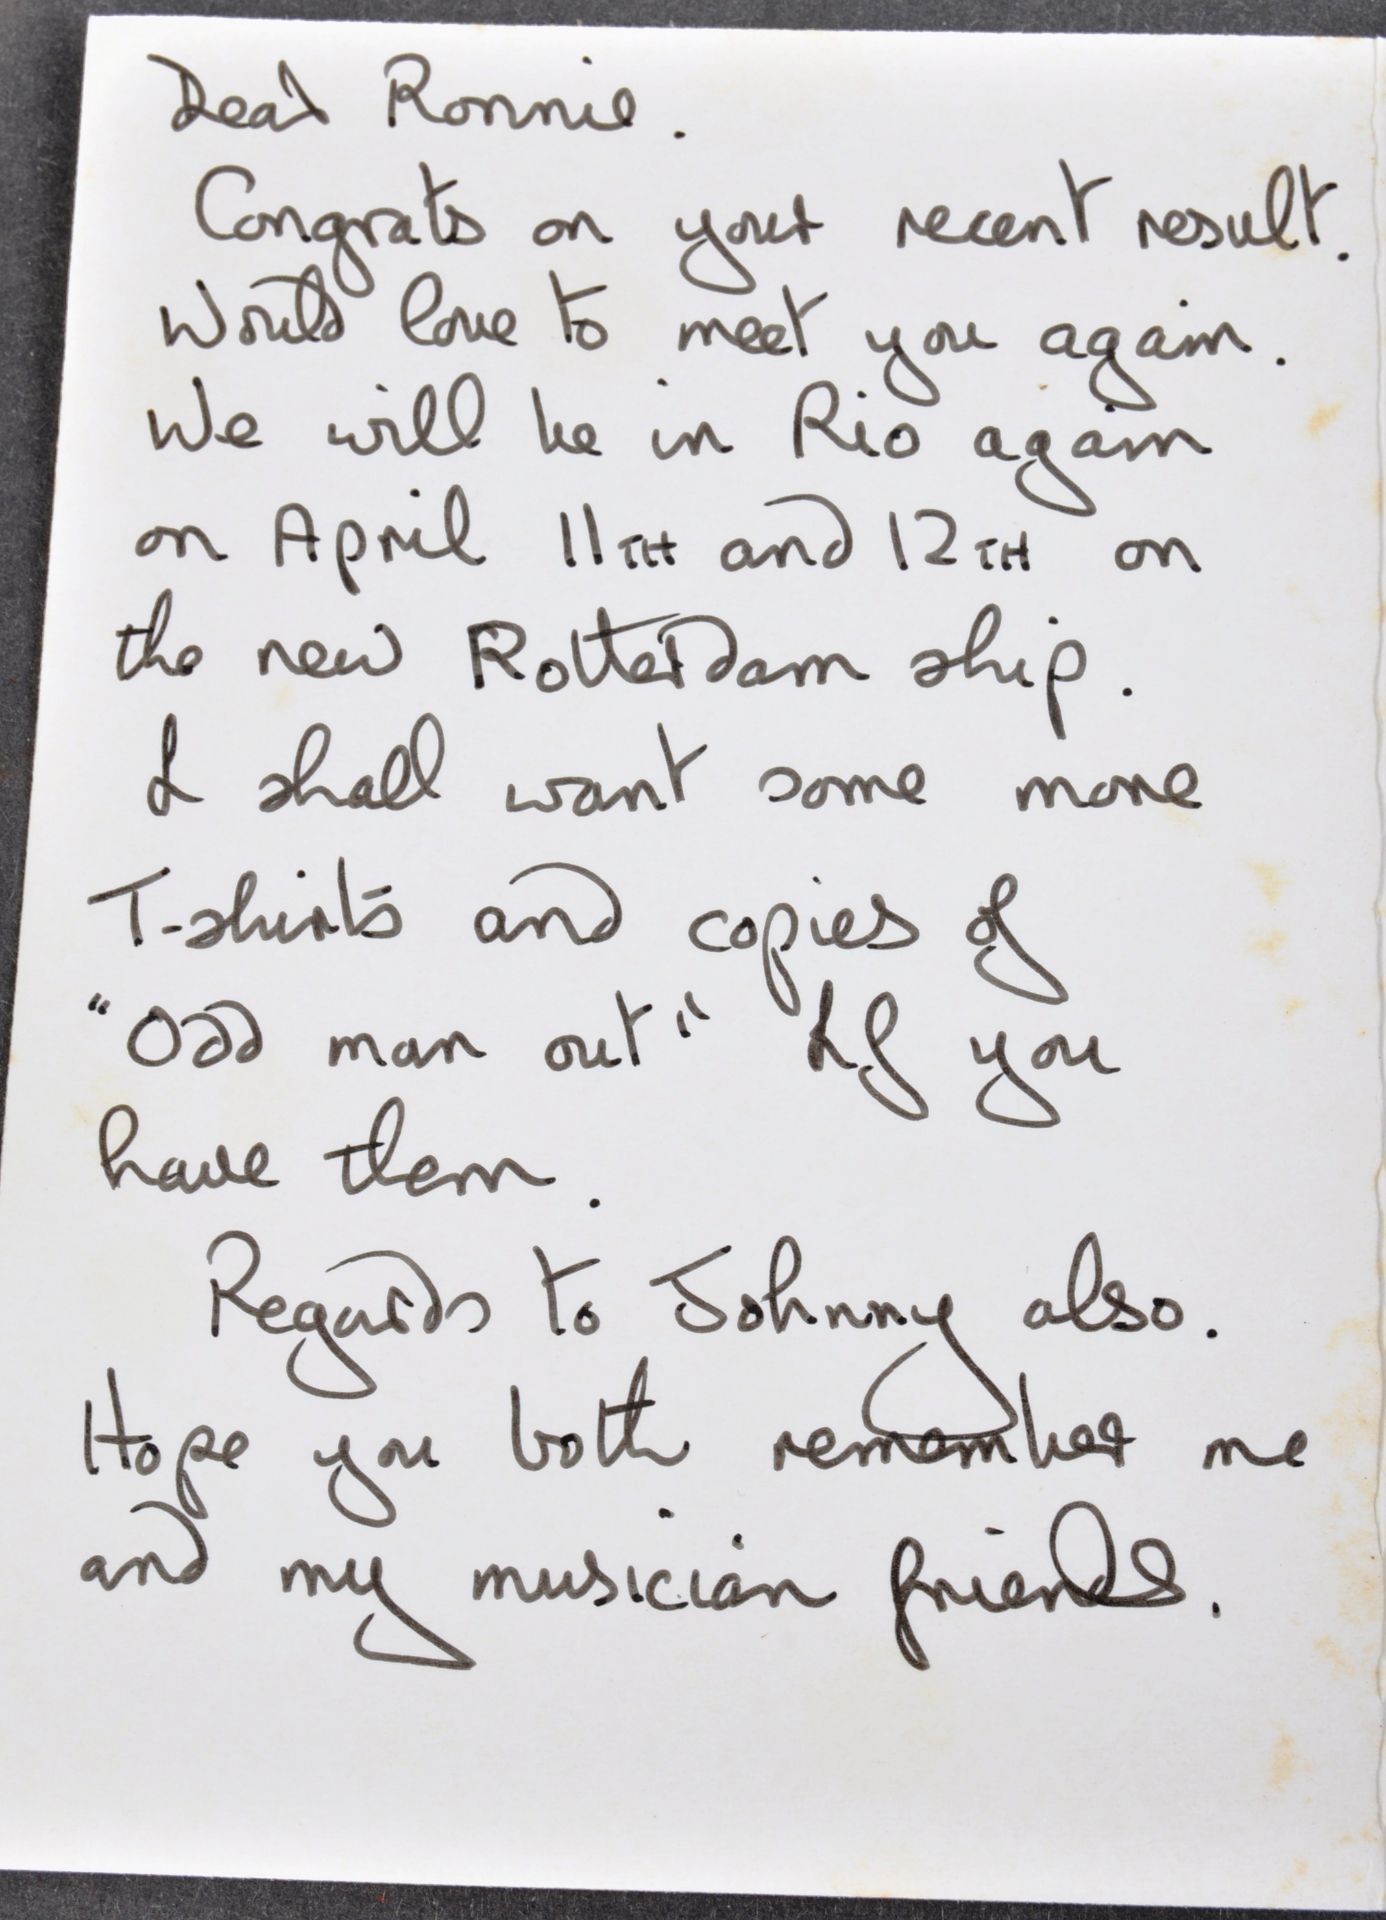 Dear Ronnie.
Congrats on your recent result.
Would love to meet you again.
We will be in Rio again
on April 11TH and 12TH on
the new Rotterdam ship.
I shall want some more
T-shirts and copies of
"Odd man out" If you
have them.
Regards to Johnny also.
Hope you both remember me
and my musician friends.